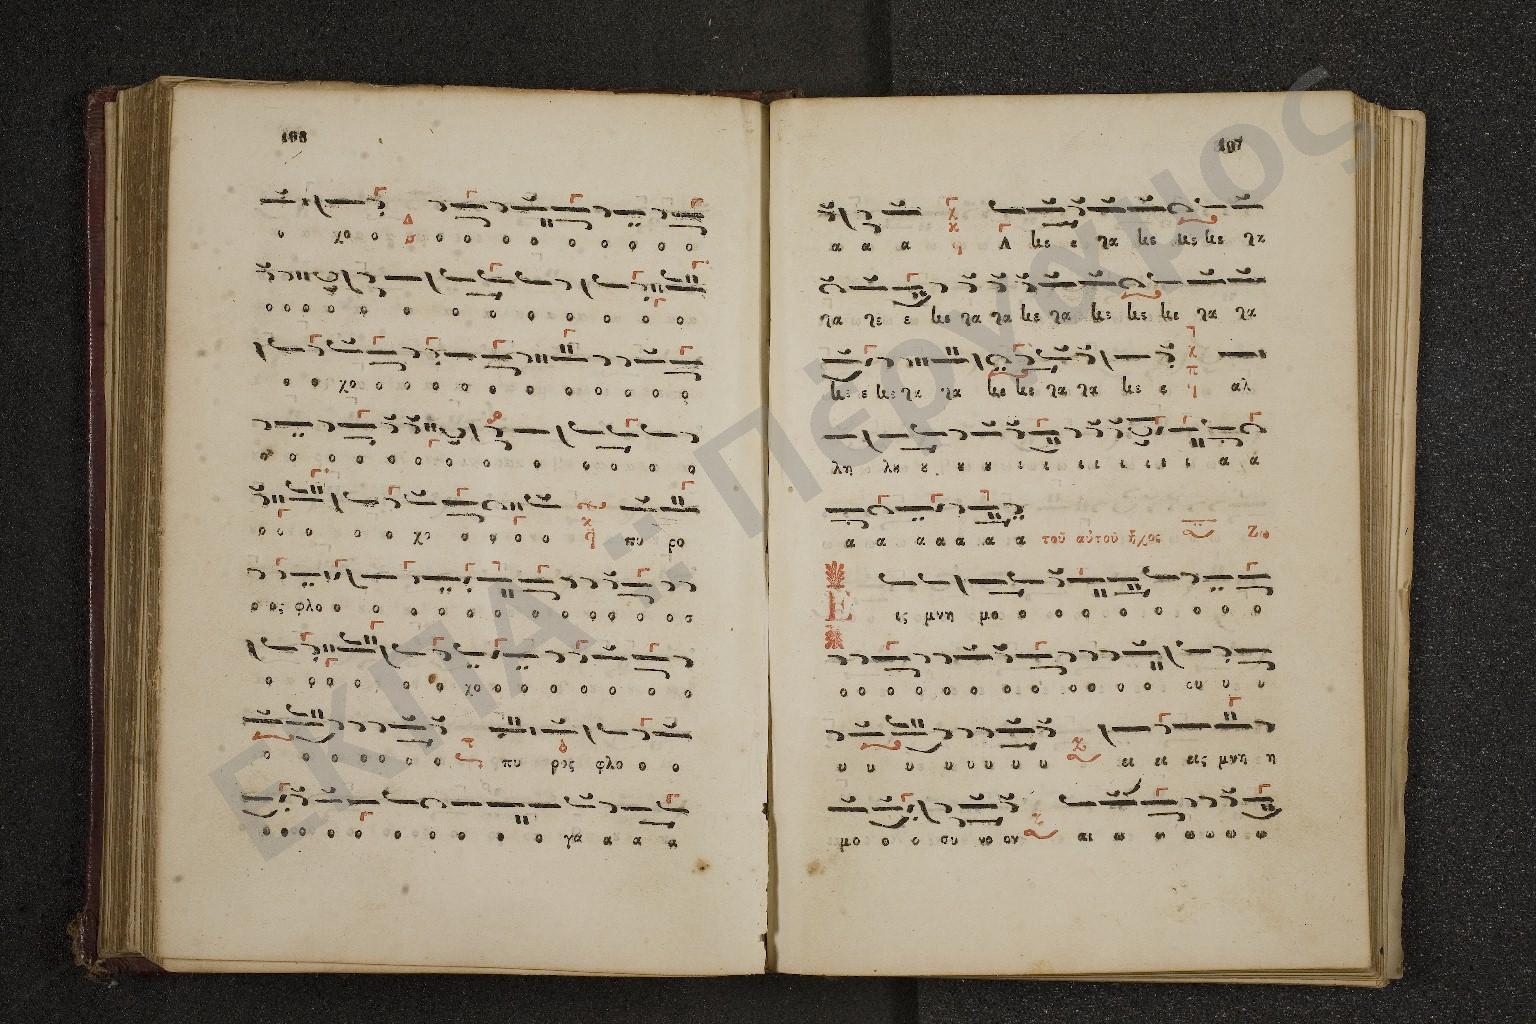 198
ο χο ο ο ο ο ο ο ο ο ο ο
ο ο ο ο ο ο ο ο ο ο ο ο ο ο
ο ο χο ο ο ο ο ο ο ο ο ο ο ο
ο ο ο ο ο ο ο ο ο ο ο ο ο ο ο
ο ο ο ο ο χο ο ο ο ο πυ ρο
ο ος φλο ο ο ο ο ο ο ο ο ο ο ο ο
ο ο ο ο ο ο χο ο ο ο ο ο ο ο
ο ο ο ο ο ο ο πυ ρος φλο ο ο
ο ο ο ο ο ο ο ο ο ο ο γα α α α
197
α α α Λ κε ε γα κε κε κε γα
γα γε ε κε γα γα κε γα κε κε κε γα γα
κε ε κε γα γα κε κε γα γα κε ε αλ
λη λυ υ υ υ ι ι ι ι ι ι ι α α
α α α α α α α τοῦ αὐτοῦ ἦχος Ζω
Ε ις μνη μο ο ο ο ο ο ο ο ο ο
ο ο ο ο ο ο ο ο ο ο ο ο συ υ υ
υ υ υ υ υ υ υ υ ει ει εις μνη η
μο ο ο συ νο ον αι ω ω ω ω ω ω
ΕΚΠΑ :: Πέργαμος